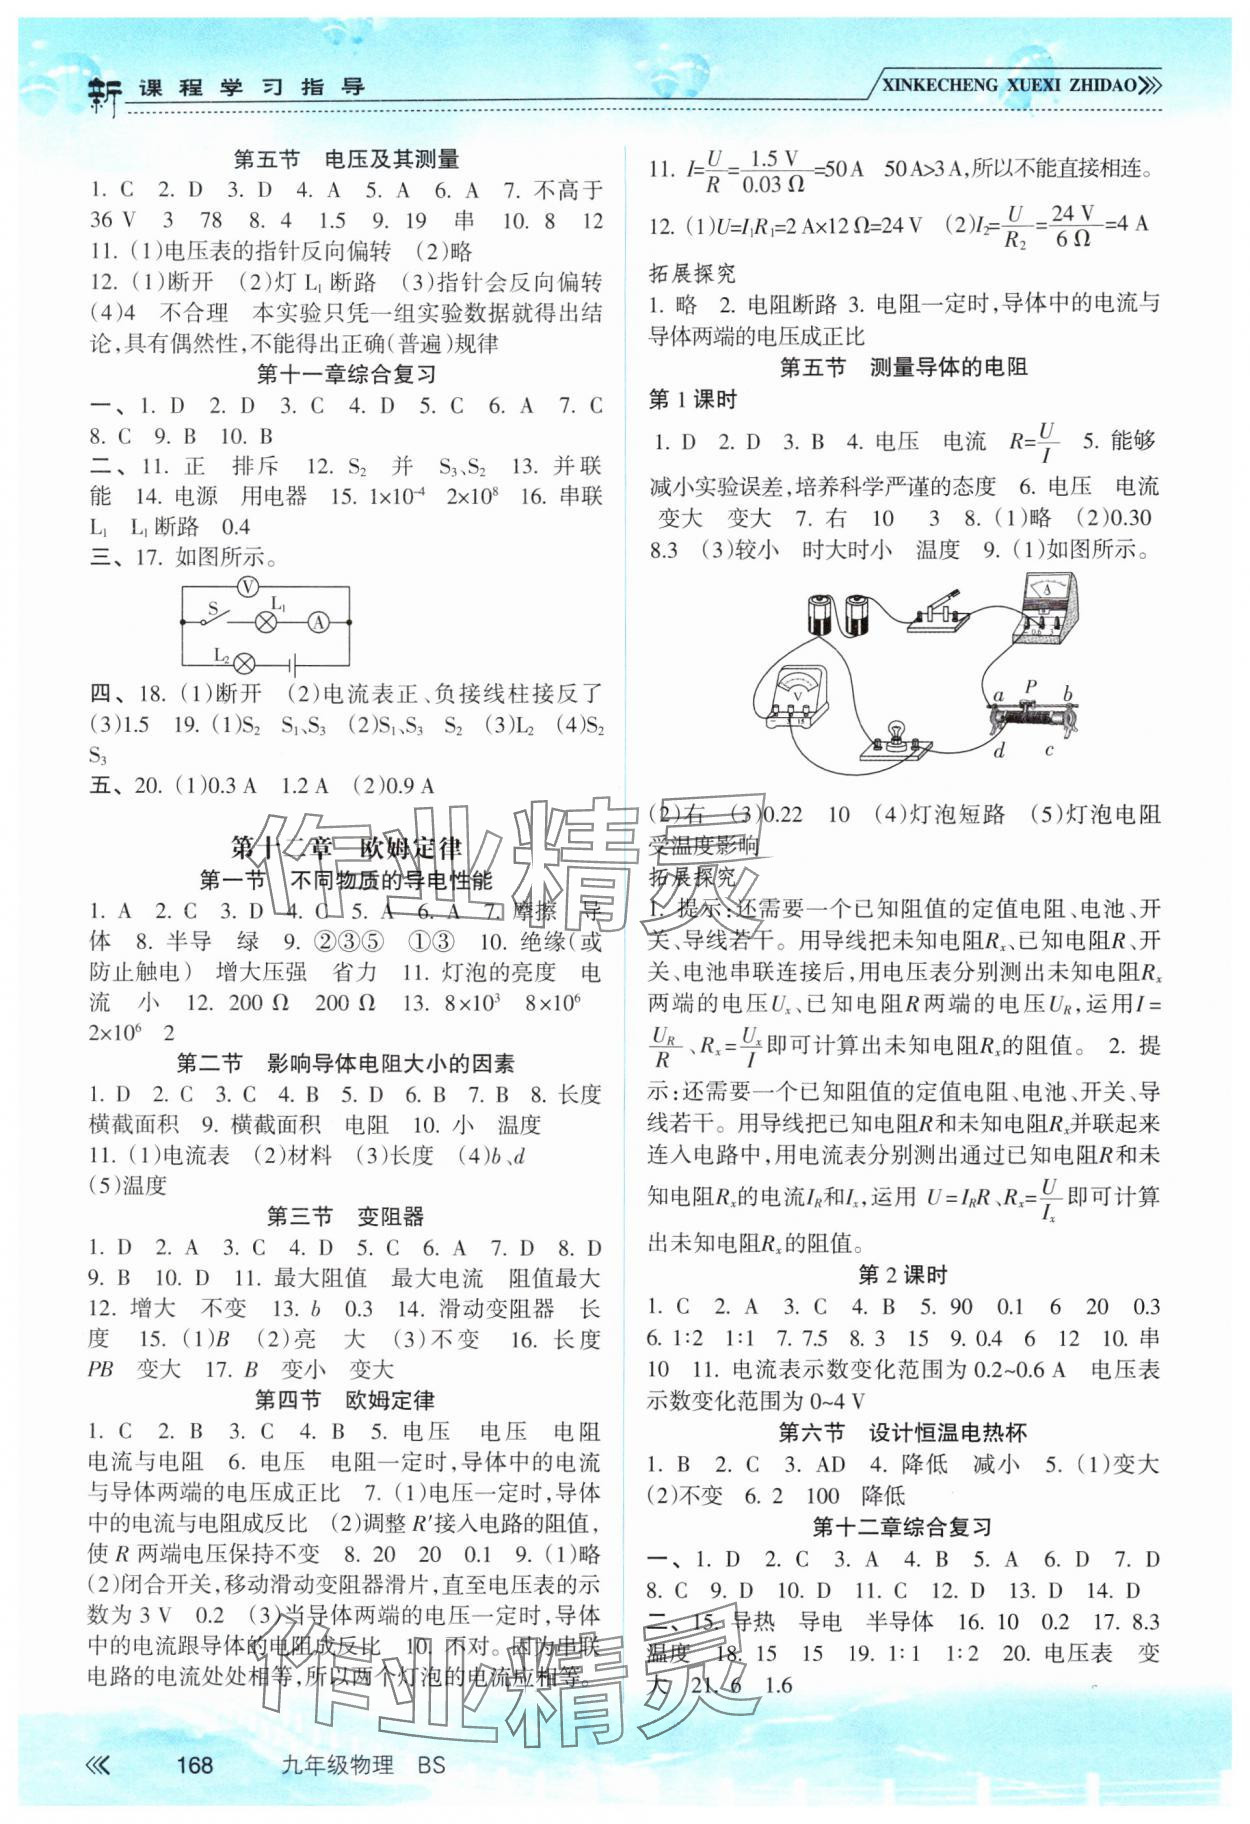 新课程学习指导
XINKECHENG XUEXI ZHIDAO
第五节 电压及其测量
1. C 2. D 3. D 4. A 5. A 6. A 7. 不高于
36 V 3 78 8. 4 1.5 9. 19 串 10. 8 12
11. (1)电压表的指针反向偏转 (2)略
12. (1)断开 (2)灯 L₁ 断路 (3)指针会反向偏转
(4)4 不合理 本实验只凭一组实验数据就得出结
论,具有偶然性,不能得出正确(普遍)规律
第十一章综合复习
一、1. D 2. D 3. C 4. D 5. C 6. A 7. C
8. C 9. B 10. B
二、11. 正 排斥 12. S₂ 并 S₃、S₂ 13. 并联
能 14. 电源 用电器 15. 1×10⁻⁴ 2×10⁸ 16. 串联
L₁ L₁断路 0.4
三、17. 如图所示。
V
S L₁ A
L₂
四、18. (1)断开 (2)电流表正、负接线柱接反了
(3)1.5 19. (1)S₂ S₁、S₃ (2)S₁、S₃ S₂ (3)L₂ (4)S₂
S₃
五、20. (1)0.3 A 1.2 A (2)0.9 A
第十二章 欧姆定律
第一节 不同物质的导电性能
1. A 2. C 3. D 4. C 5. A 6. A 7. 摩擦 导
体 8. 半导 绿 9. ②③⑤ ①③ 10. 绝缘(或
防止触电) 增大压强 省力 11. 灯泡的亮度 电
流 小 12. 200 Ω 200 Ω 13. 8×10³ 8×10⁶
2×10⁶ 2
第二节 影响导体电阻大小的因素
1. D 2. C 3. C 4. B 5. D 6. B 7. B 8. 长度
横截面积 9. 横截面积 电阻 10. 小 温度
11. (1)电流表 (2)材料 (3)长度 (4)b、d
(5)温度
第三节 变阻器
1. D 2. A 3. C 4. D 5. C 6. A 7. D 8. D
9. B 10. D 11. 最大阻值 最大电流 阻值最大
12. 增大 不变 13. b 0.3 14. 滑动变阻器 长
度 15. (1)B (2)亮 大 (3)不变 16. 长度
PB 变大 17. B 变小 变大
第四节 欧姆定律
1. C 2. B 3. C 4. B 5. 电压 电压 电阻
电流与电阻 6. 电压 电阻一定时,导体中的电流
与导体两端的电压成正比 7. (1)电压一定时,导体
中的电流与电阻成反比 (2)调整 R′接入电路的阻值,
使 R 两端电压保持不变 8. 20 20 0.1 9. (1)略
(2)闭合开关,移动滑动变阻器滑片,直至电压表的示
数为 3 V 0.2 (3)当导体两端的电压一定时,导体
中的电流跟导体的电阻成反比 10. 不对。因为串联
电路的电流处处相等,所以两个灯泡的电流应相等。
11. I=U/R=1.5 V/0.03 Ω=50 A 50 A>3 A,所以不能直接相连。
12. (1)U=I₁R₁=2 A×12 Ω=24 V (2)I₂=U/R₂=24 V/6 Ω=4 A
拓展探究
1. 略 2. 电阻断路 3. 电阻一定时,导体中的电流与
导体两端的电压成正比
第五节 测量导体的电阻
第 1 课时
1. D 2. D 3. B 4. 电压 电流 R=U/I 5. 能够
减小实验误差,培养科学严谨的态度 6. 电压 电流
变大 变大 7. 右 10 3 8. (1)略 (2)0.30
8.3 (3)较小 时大时小 温度 9. (1)如图所示。
A
- 0.6 3
V
- 3 15
a P b
d c
(2)右 (3)0.22 10 (4)灯泡短路 (5)灯泡电阻
受温度影响
拓展探究
1. 提示:还需要一个已知阻值的定值电阻、电池、开
关、导线若干。用导线把未知电阻Rₓ、已知电阻R、开
关、电池串联连接后,用电压表分别测出未知电阻Rₓ
两端的电压Uₓ、已知电阻R两端的电压U_R,运用I=
U_R/R、Rₓ=Uₓ/I即可计算出未知电阻Rₓ的阻值。 2. 提
示:还需要一个已知阻值的定值电阻、电池、开关、导
线若干。用导线把已知电阻R和未知电阻Rₓ并联起来
连入电路中,用电流表分别测出通过已知电阻R和未
知电阻Rₓ的电流I_R和Iₓ,运用 U=I_RR、Rₓ=U/Iₓ即可计算
出未知电阻Rₓ的阻值。
第 2 课时
1. C 2. A 3. C 4. B 5. 90 0.1 6 20 0.3
6. 1:2 1:1 7. 7.5 8. 3 15 9. 0.4 6 12 10. 串
10 11. 电流表示数变化范围为 0.2~0.6 A 电压表
示数变化范围为 0~4 V
第六节 设计恒温电热杯
1. B 2. C 3. AD 4. 降低 减小 5. (1)变大
(2)不变 6. 2 100 降低
第十二章综合复习
一、1. D 2. C 3. A 4. B 5. A 6. D 7. D
8. C 9. D 10. D 11. C 12. D 13. D 14. D
二、15. 导热 导电 半导体 16. 10 0.2 17. 8.3
温度 18. 15 15 19. 1:1 1:2 20. 电压表 变
大 21. 6 1.6
作业精灵
作业精灵
168 九年级物理 BS